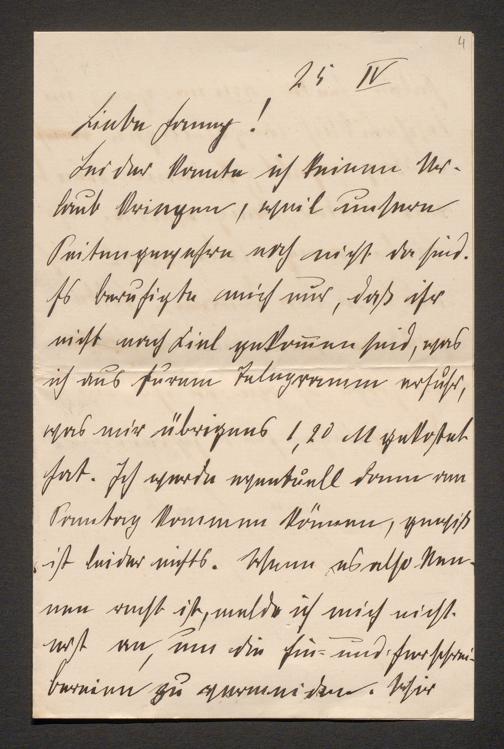 4
25 IV
Liebe Fanny!
Leider konnte ich keinen Ur-
laub kriegen, weil unsere
Seitengewehre noch nicht da sind.
Es beruhigte mich nur, daß ihr
nicht nach Kiel gekommen seid, was
ich aus Eurem Telegramm erfuhr,
was mir übrigens 1,20 M gekostet
hat. Ich werde eventuell dann am
Sonntag kommen können, gewiß
ist leider nichts. Wenn es also
nen recht ist, melde ich mich nicht
erst an, um die Hin- und Herschrei-
bereien zu vermeiden. Wir